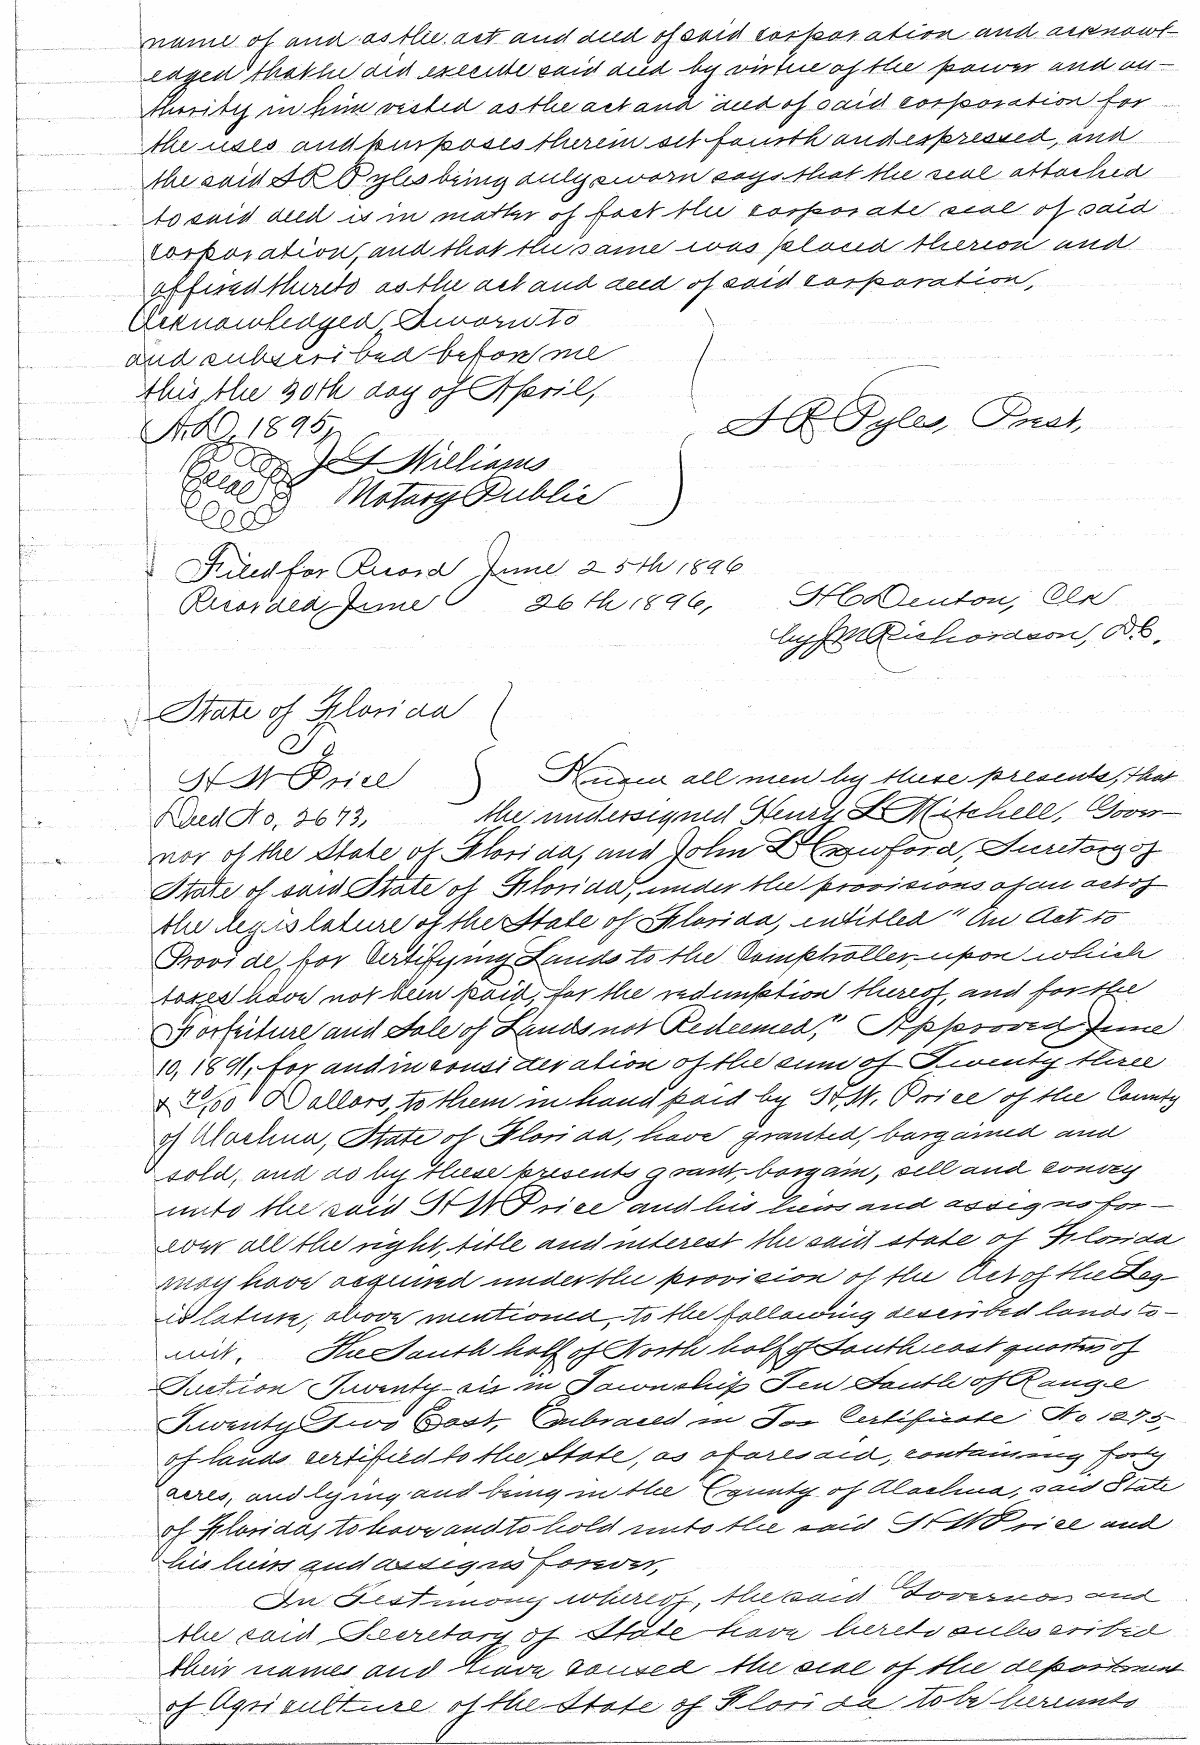 name of and as the act and deed of said corporation and acknowl-
edged that he did execute said deed by virtue of the power and au-
thority in him vested as the act and deed of said corporation for
the uses and purposes therein set fourth and expressed, and
the said S R Pyles being duly sworn says that the seal attached
to said deed is in matter of fact the corporate seal of said
corporation, and that the same was placed thereon and
affixed thereto as the act and deed of said corporation,
Acknowledged, Sworn to
and subscribed before me
this the 30th day of April,
A.D, 1895,
S R Pyles, Prest,
Seal J G Williams
Notary Public
Filed for Record June 25th 1896
Recorded June 26th 1896, H C Denton, Clk
by J M Richardson, D.C.
State of Florida
To
H W Price Know all men by these presents, that
Deed No, 2673, the undersigned Henry L Mitchell, Gover-
nor of the State of Florida, and John L Crawford, Secretary of
State of said State of Florida, under the provisions of an act of
the legislature of the State of Florida, entitled "An Act to
Provide, for Certifying Lands to the Comptroller, upon which
taxes have not been paid, for the redemption thereof, and for the
Forfeiture and Sale of Lands not Redeemed," Approved June
10, 1891, for and in consideration of the sum of Twenty three
& 70/100 Dollars, to them in hand paid by H. W. Price of the County
of Alachua, State of Florida, have granted, bargained and
sold, and do by these presents grant, bargain, sell and convey
unto the said H W Price and his heirs and assigns for-
ever all the right, title and interest the said state of Florida
may have acquired under the provision of the Act of the Leg-
islature, above mentioned, to the following described lands to-
wit. The South half of North half of South east quarter of
Section Twenty-six in Township Ten South of Range
Twenty Two East, Embraced in Tax Certificate No 1275,
of lands certified to the State, as aforesaid, containing forty
acres, and lying and being in the County of Alachua, said State
of Florida, to have and to hold unto the said H W Price and
his heirs and assigns forever,
In Testimony whereof, the said Governor and
the said Secretary of State have hereto subscribed
their names and have caused the seal of the department
of Agriculture of the State of Florida to be hereunto